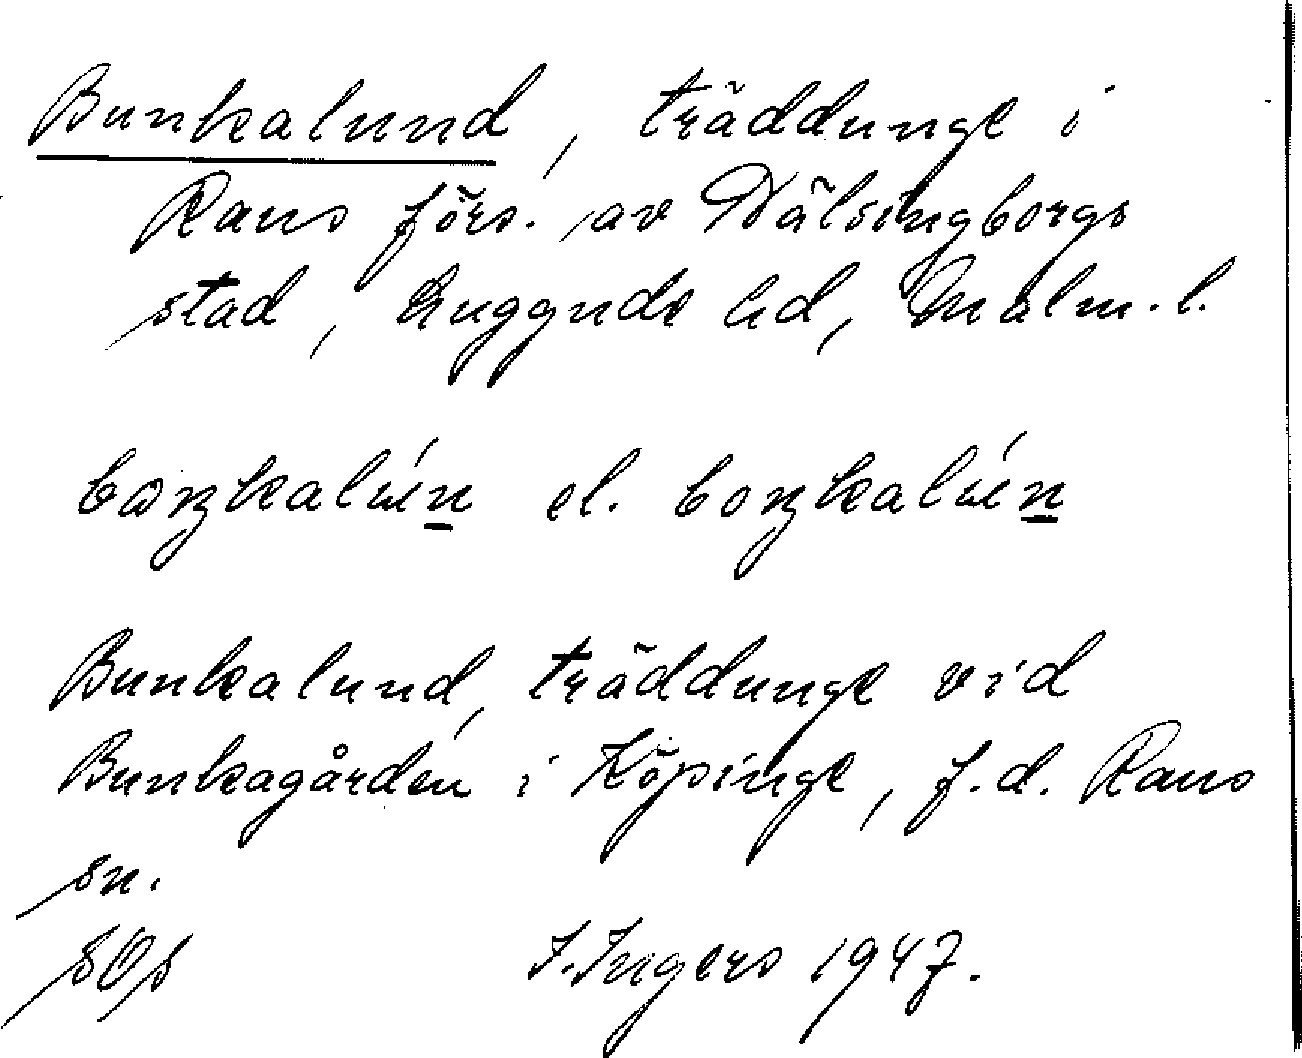 Bunkalund, träddunge i
Raus förs. av Hälsingborgs
stad, Luggude hd, Malm. l.
el.
Bunkalund, träddunge vid
Bunkagården i Köpinge, f.d. Raus
sn.
I. Ingers 1947.